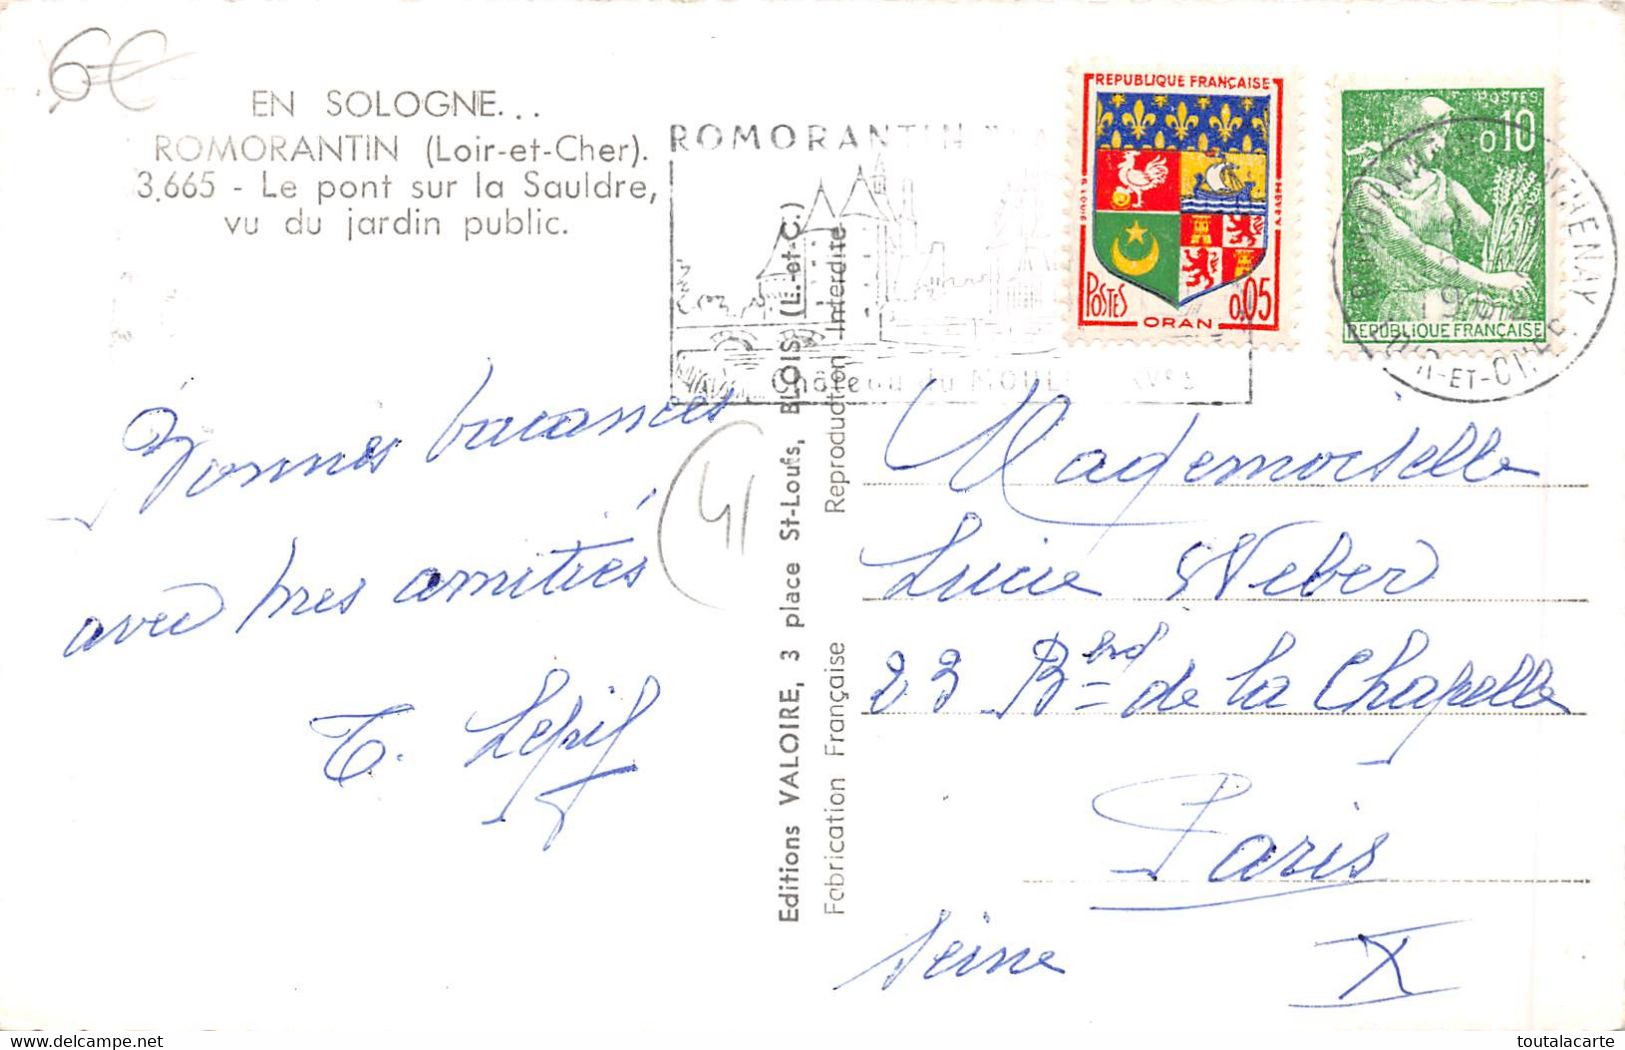 6€
EN SOLOGNE...
ROMORANTIN (Loir-et-Cher).
3.665 - Le pont sur la Sauldre,
vu du jardin public.
ROMORANTIN
Château du
REPUBLIQUE FRANÇAISE
POSTES
0,05
ORAN
POSTES
0,10
REPUBLIQUE FRANÇAISE
LOIR-ET-CHER
Bonnes vacances
avec mes amitiés
41
Editions VALOIRE, 3 place St-Louis, BLOIS (L.-et-C.)
Fabrication Française Reproduction Interdite
Mademoiselle
Lucie Weber
23 Berd de la Chapelle
Paris
Seine X
toutalacarte